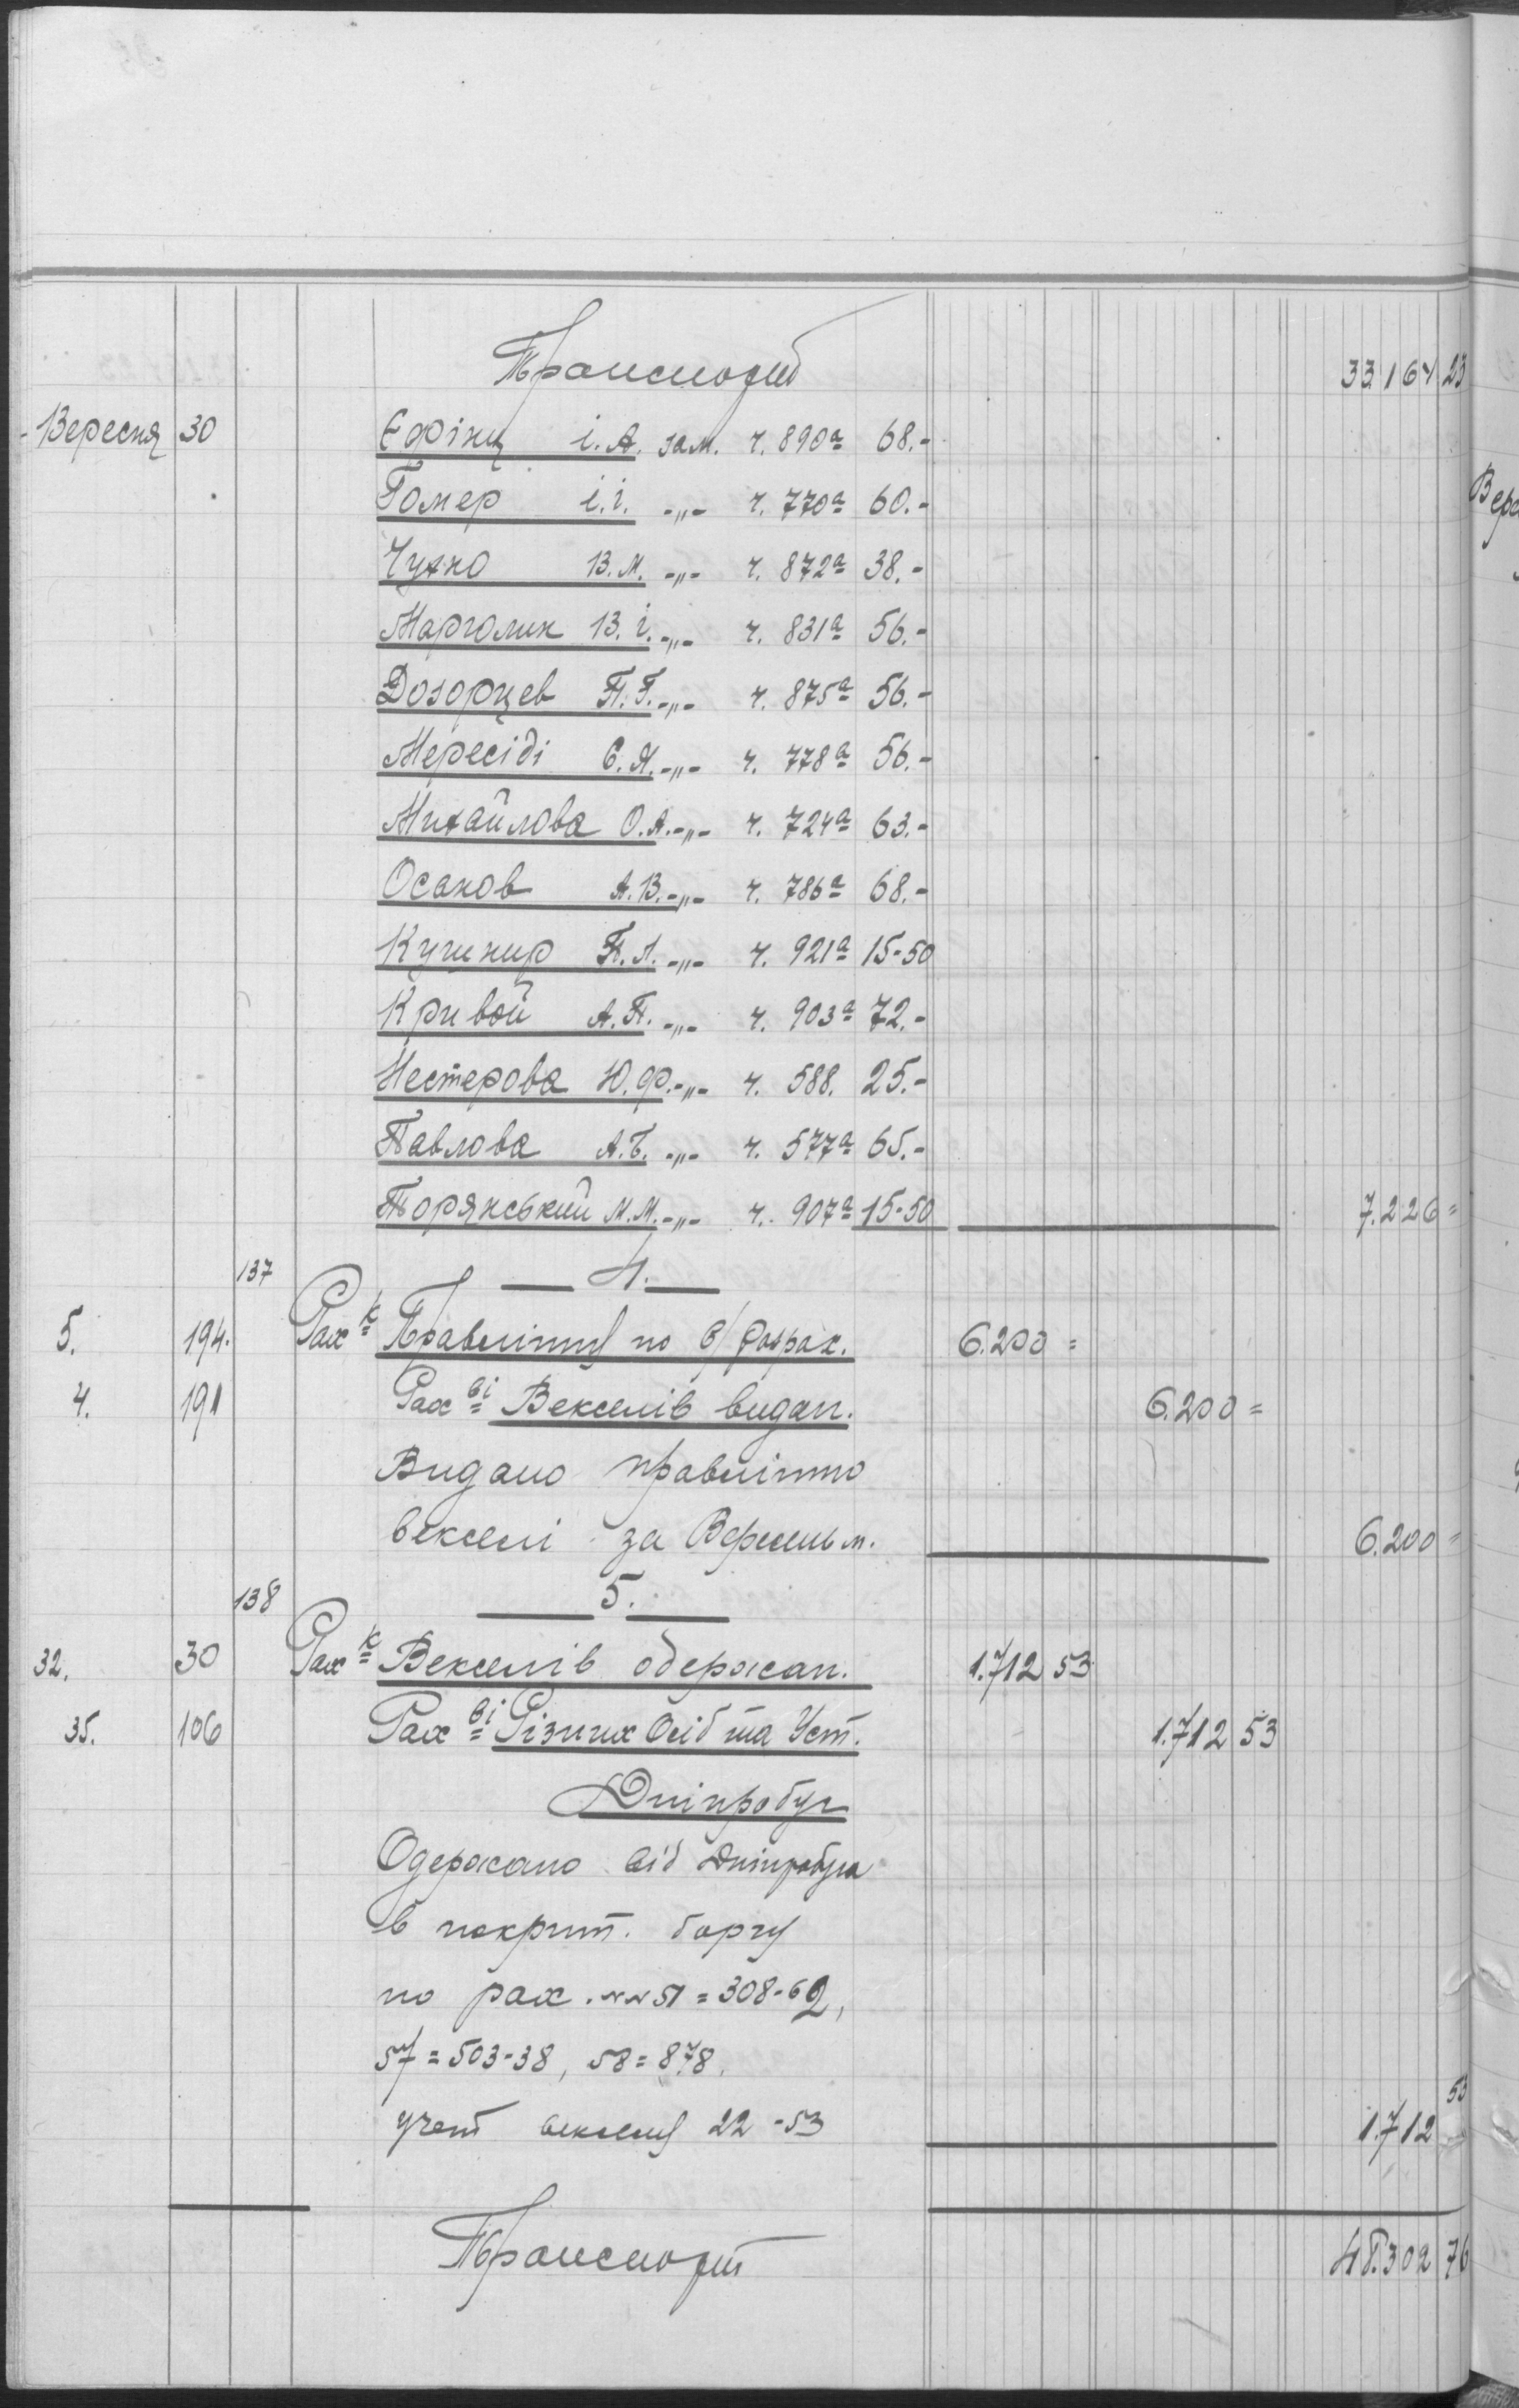 Транспорт 33164 23
Вересня 30 Єфіну і. А. зам. ч. 890а 68.-
Гомер і. і. -"- ч. 770а 60.-
Чухно В. М. -"- ч. 872а 38.-
Марголин В. і. -"- ч. 831а 56.-
Дозорцев П. Г. -"- ч. 875а 56.-
Мересіді Є. Я. -"- ч. 778а 56.-
Михайлова О. А. -"- ч. 724а 63.-
Осанов А. В. -"- ч. 786а 68.-
Кушнир П. Л. -"- ч. 921а 15-50
Кривой А. П. -"- ч. 903а 72.-
Нестерова Ю. Ф. -"- ч. 588. 25.-
Павлова А. Б. -"- ч. 577а 65.-
Торянський М. М. -"- ч. 907а 15-50 7.226=
137 4.
5. 194. Рах-к Правлінню по в/розрах. 6.200=
4. 191 Рах-ві Векселів видан. 6.200=
Видано правлінню
векселі за Вересень м. 6.200=
138 5.
32. 30 Рах-к Векселів одержан. 1.712 53
35. 106 Рах-ві Різних Осіб та Уст. 1.712 53
Дніпробуг
Одержано від Дніпробуга
в покрит. боргу
по рах. №№ 51=308-62,
57=503-38, 58=878.
учет векселу 22-53 1.712 53
Транспорт 48.302 76
Вере